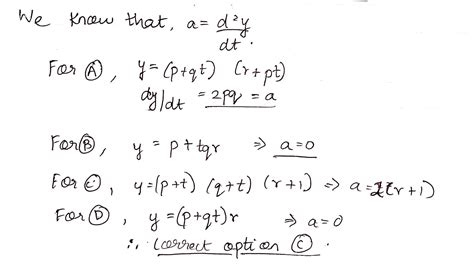 We know that, a = d²y/dt.
For Ⓐ, y = (p+qt) (r+pt)
dy/dt = 2pq = a
For Ⓑ, y = p + tqr ⇒ a = 0
For Ⓒ, y = (p+t) (q+t) (r+1) ⇒ a = 2(r+1)
For Ⓓ, y = (p+qt)r ⇒ a = 0
∴ Correct option Ⓒ.